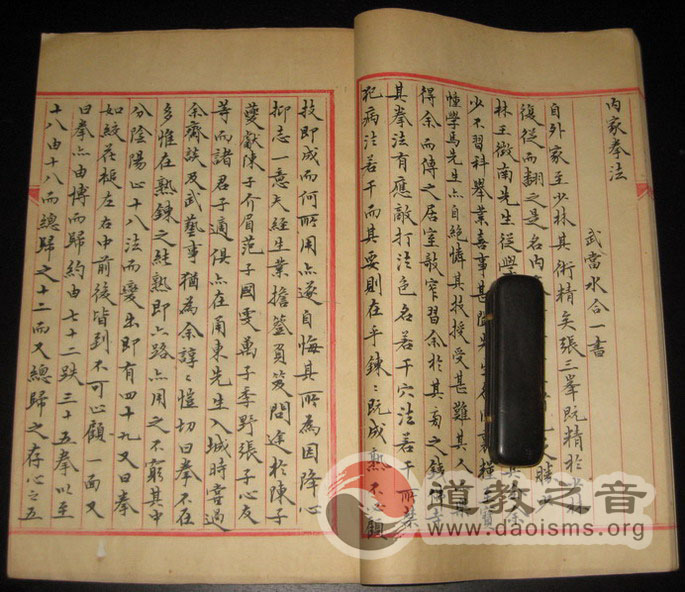 內家拳法
武當水合一書
自外家至少林其術精矣張三拳既精於少
復從而翻之是名內
林王徵南先生從學
少不習科舉業喜事甚聞
憧學焉先生亦自絕憐其技授受甚難其入
得余而傳之居室敧窄習余於其旁之鐵
其拳法有應敵打法色名若干穴法若干所禁
犯病法若干而其要則在乎鍊ゝ既成熟不必顧
技即成而何所用亦遂自悔其所為因降心
抑志一意夫經生業擔簦負笈問途於陳子
夔獻陳子介眉范子國雯萬子季野張子心友
等而諸君子適俱亦在甬東先生入城時嘗過
余齋談及武藝事猶為余諄ゝ愷切曰拳不在
多惟在熟鍊之純熟即六路亦用之不窮其中
分陰陽止十八法而變出即有四十九又曰拳
如絞花槌左右中前後皆到不可止顧一面又
曰拳亦由博而歸約由七十二跌三十五拳以至
十八由十八而總歸之十二而又總歸之存心之五
道教之音
www.daoisms.org